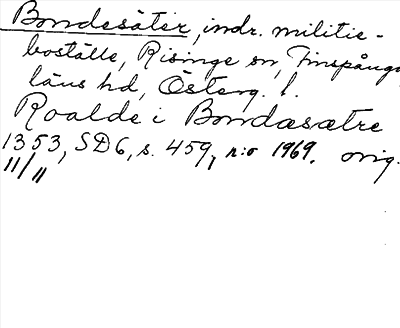 Bondesäter, indr. militie-
boställe, Risinge sn, Finspånga
läns hd, Österg. l.
Roalde i Bondæsætre
1353, SD6, s. 459, n:o 1969. orig.
11/11